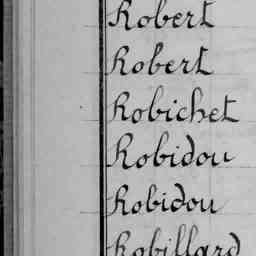 Robert
Robert
Robichet
Robidou
Robidou
Robillard